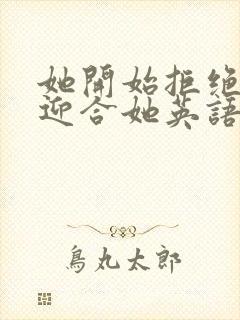 她開始拒绝
迎合她英語
鳥丸太郎